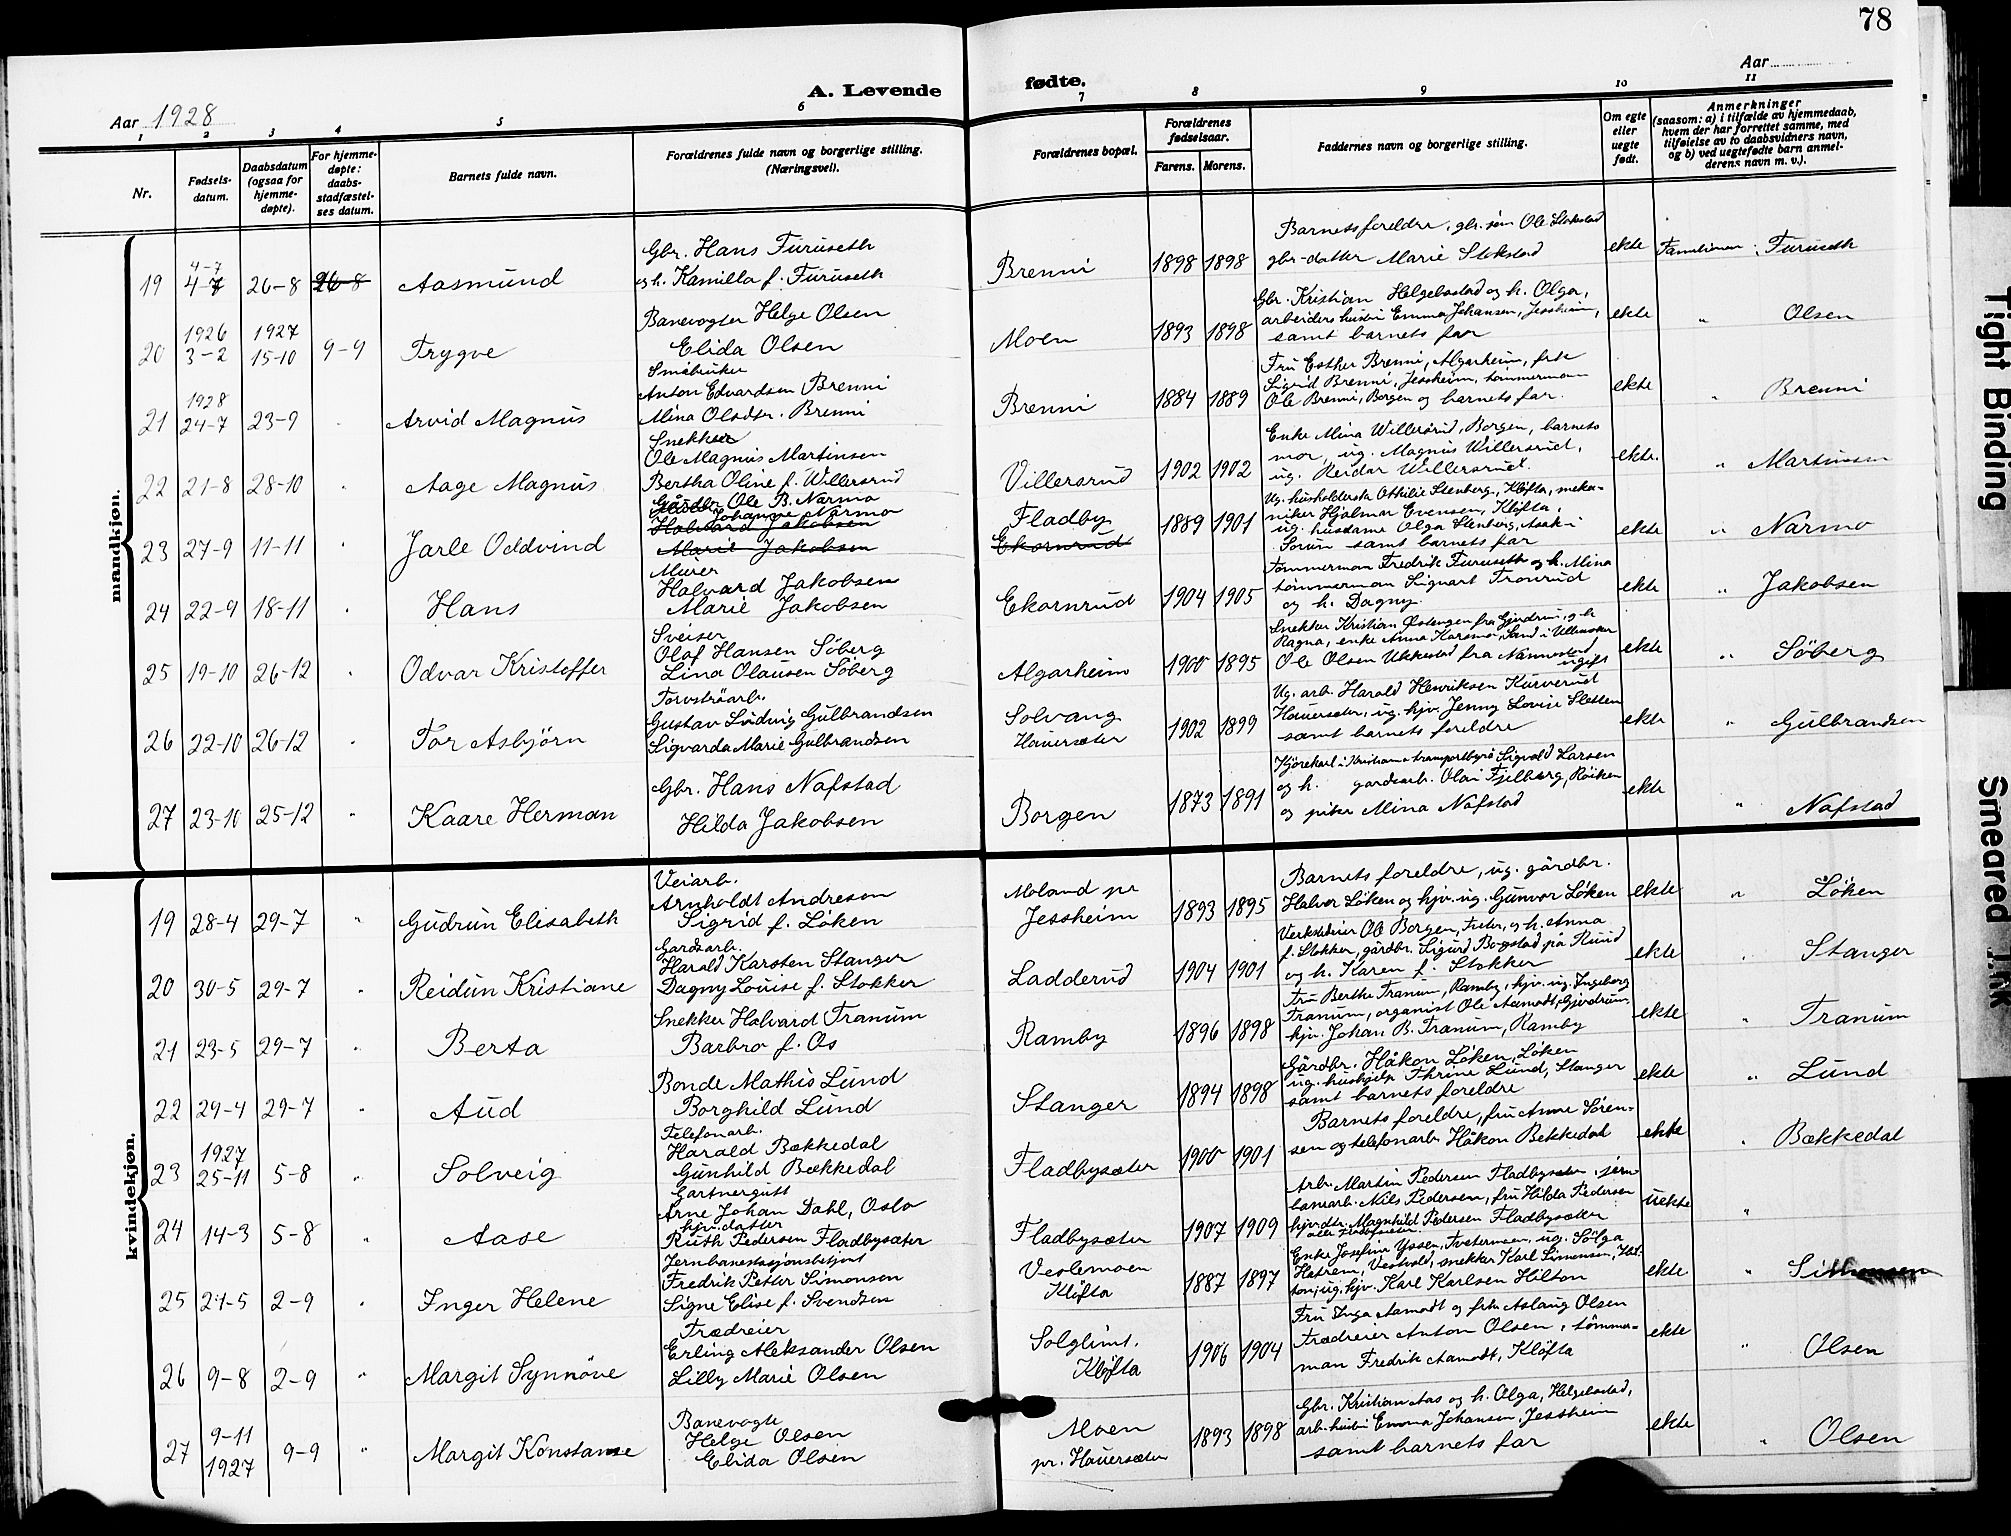 78
A. Levende fødte.
Aar 1928
Aar
1 2 3 4 5 6 7 8 9 10 11
Nr.
Fødsels-
datum.
Daabsdatum
(ogsaa for
hjemme-
døpte).
For hjemme-
døpte:
daabs-
stadfæstel-
ses datum.
Barnets fulde navn.
Forældrenes fulde navn og borgerlige stilling.
(Næringsvei).
Forældrenes bopæl.
Forældrenes
fødselsaar.
Farens. Morens.
Faddernes navn og borgerlige stilling.
Om egte
eller
uegte
født.
Anmerkninger
(saasom: a) i tilfælde av hjemmedaab,
hvem der har forrettet samme, med
tilføielse av to daabsvidners navn,
og b) ved uegtefødte barn anmel-
derens navn m. v.).
mandkjøn.
19 4-7 4-7 26-8 26-8 Aasmund
Gbr. Hans Furuseth
og h. Kamilla f. Furuseth
Brenni 1898 1898
Barnets foreldre, gbr. søn Ole Stokstad
gbr-datter Marie Stokstad
ekte Familienavn: Furuseth
20 1926 3-2 1927 15-10 9-9 Trygve
Banevogter Helge Olsen
Elida Olsen
Moen 1893 1898
Gbr. Kristian Helgebostad og h. Olga,
arbeiders hustru Emma Johansen, Jessheim,
samt barnets far
ekte " Olsen
21 1928 24-7 23-9 Arvid Magnus
Småbruker
Anton Edvardsen Brenni
Mina Olsdtr. Brenni
Brenni 1884 1889
Fru Esther Brenni, Algarheim, frk
Sigrid Brenni, Jessheim, tømmermann
Ole Brenni, Borgen og barnets far.
ekte " Brenni
22 21-8 28-10 " Aage Magnus
Snekker
Ole Magnus Martinsen
Bertha Oline f. Willersrud
Villersrud 1902 1902
Enke Mina Willersrud, Borgen, barnets
mor, ug. Magnus Willersrud,
ug. Reidar Willersrud.
ekte. " Martinsen
23 27-9 11-11 " Jarle Oddvind
Gårdbr. Ole B. Narmo
Johanne Narmo
Halvard Jakobsen
Marie Jakobsen
Fladby
Ekornrud
1889 1901
Ug. husholderske Othilie Stenberg, Kløfta, meka-
niker Hjalmar Evensen, Kløfta,
ug. husdame Olga Stenberg, Asak i
Sørum samt barnets far
ekte " Narmo
24 22-9 18-11 " Hans
Murer
Halvard Jakobsen
Marie Jakobsen
Ekornrud 1904 1905
Tømmerman Fredrik Furuseth og h. Mina
tømmerman Sigvart Tronrud
og h. Dagny.
ekte " Jakobsen
25 19-10 26-12 " Odvar Kristoffer
Sveiser
Olaf Hansen Söberg
Lina Olausen Söberg
Algarheim 1900 1895
Snekker Kristian Østengen fra Gjerdrum, og h.
Ragna, enke Anna Karsmo, Sand i Ullensaker
Ole Olsen Ukkestad fra Nannestad
ugift
ekte " Söberg
26 22-10 26-12 " Tor Asbjörn
Torvströarb.
Gustav Ludvig Gulbrandsen
Sigvarda Marie Gulbrandsen
Solvang
Hauersæter
1902 1899
Ug. arb. Harald Henriksen Kurverud
Hauersæter, ug. hjv. Jenny Lovise Sletten
samt barnets foreldre
ekte " Gulbrandsen
27 23-10 25-12 " Kaare Herman
Gbr. Hans Nafstad
Hilda Jakobsen
Borgen 1873 1891
Kjørekarl i Kristiania transportbyrå Sigvald Larsen
og h. gardsarb. Olav Fjelberg, Røiken
og pike Mina Nafstad
ekte " Nafstad
kvindekjøn.
19 28-4 29-7 " Gudrun Elisabeth
Veiarb.
Arnholdt Andresen
Sigrid f. Löken
Moland pr
Jessheim
1893 1895
Barnets foreldre, ug. gårdbr.
Halvor Løken og hjv. ug. Gunvor Løken
ekte " Löken
20 30-5 29-7 " Reidun Kristiane
Gardsarb.
Harald Karsten Stanger
Dagny Louise f. Stokker
Ladderud 1904 1901
Verkstedeier Ole Borgen, og h. Anna
f. Stokker, gårdbr. Sigurd Bogstad på Ruud
og h. Karen f. Stokker
ekte " Stanger
21 23-5 29-7 " Berta
Snekker Halvard Tranum
Barbro f. Os
Ramby 1896 1898
Fru Berthe Tranum, Ramby, hjv. ug. Ingeborg
Tranum, organist Ole Aamodt, Gjerdrum,
hjv. Johan B. Tranum, Ramby
ekte " Tranum
22 29-4 29-7 " Aud
Bonde Mathis Lund
Borghild Lund
Stanger 1894 1898
Gårdbr. Håkon Løken, Løken
ug. hushjelp Thrine Lund, Stanger
samt barnets foreldre
ekte " Lund
23 1927 25-11 5-8 " Solveig
Telefonarb.
Harald Bækkedal
Gunhild Bækkedal
Fladbysæter 1900 1901
Barnets foreldre, fru Anne Sören-
sen og telefonarb. Håkon Bekkedal
ekte " Bækkedal
24 14-3 5-8 " Aase
Gartnergutt
Arne Johan Dahl, Oslo
hjv. datter
Ruth Pedersen Fladbysæter
Fladbysæter 1907 1909
Arb. Martin Pedersen Fladbysæter, jern-
banearb. Nils Pedersen, fru Hilda Pedersen
hjv. dtr. Magnhild Pedersen Fladbysæter
alle Fladbysæter
uekte "
25 21-5 2-9 " Inger Helene
Jernbanestasjonsbetjent
Fredrik Petter Simonsen
Signe Elise f. Svendsen
Veslemoen
Kløfta
1887 1897
Enke Josefine Yssen, Tveternoen, ug. Solga
Hetrem, Vestvold, snekker Karl Simensen, Hil-
ton, ug. hjv. Karl Karlsen Hilton
ekte " Simonsen
26 9-8 2-9 " Margit Synnöve
Trædreier
Erling Aleksander Olsen
Lilly Marie Olsen
Solglimt.
Kløfta
1906 1904
Fru Inga Aamodt og frk. Aslaug Olsen
Trædreier Anton Olsen, tømmer-
man Fredrik Aamodt, Kløfta
ekte " Olsen
27 9-11 1927 9-9 " Margit Konstanse
Banevogte
Helge Olsen
Elida Olsen
Moen
pr. Hauersæter
1893 1898
Gbr. Kristian Aas og h. Olga, Helgebostad,
arb. hustru Emma Johansen, Jessheim
samt barnets far
ekte " Olsen
Tight Binding
Smeared Ink